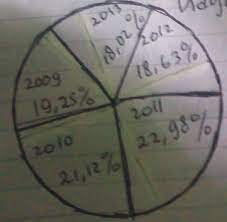 2013
18,02%
2012
18,63%
2009
19,25%
2011
22,98%
2010
21,12%